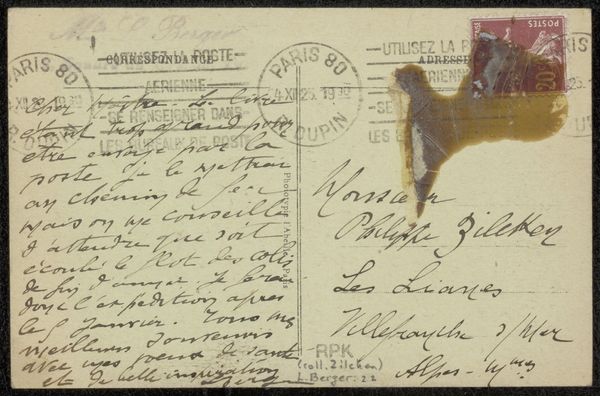 Mme L. Berger
CORRESPONDANCE
UTILISEZ LA POSTE
AERIENNE
SE RENSEIGNER DANS
LES BUREAUX DE POSTE
PARIS 80
4 XII 25 19 30
R. DUPIN
UTILISEZ LA P
ADRESSE
AERIENNE
SE
LES B
POSTES
20
Cher Maître. Le livre
étant trop grand pour
être envoyé par la
poste je le mettrai
au chemin de fer
mais on me conseille
d'attendre que soit
écoulé le flot des colis
de fin d'année. Je ferai
donc l'expédition après
le 5 Janvier. Tous mes
meilleurs souvenirs
avec mes voeux de santé
et de belle inspiration
Berger
Phototypie l'Abeille, Paris
Monsieur
Philippe Zilcken
Les Lianes
Villefranche s/Mer
Alpes-Mmes
RPK
(coll. Zilcken)
L. Berger: 22